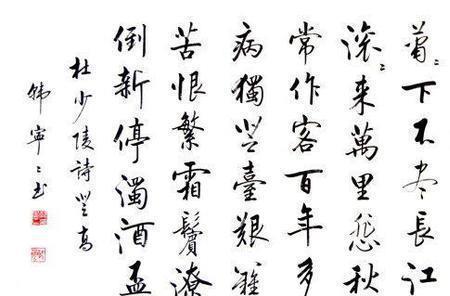 蕭〻下不尽長江
滚〻来萬里悲秋
常作客百年多
病獨登臺艱難
苦恨繁霜鬢潦
倒新停濁酒盃
杜少陵詩登高
韩寧〻书